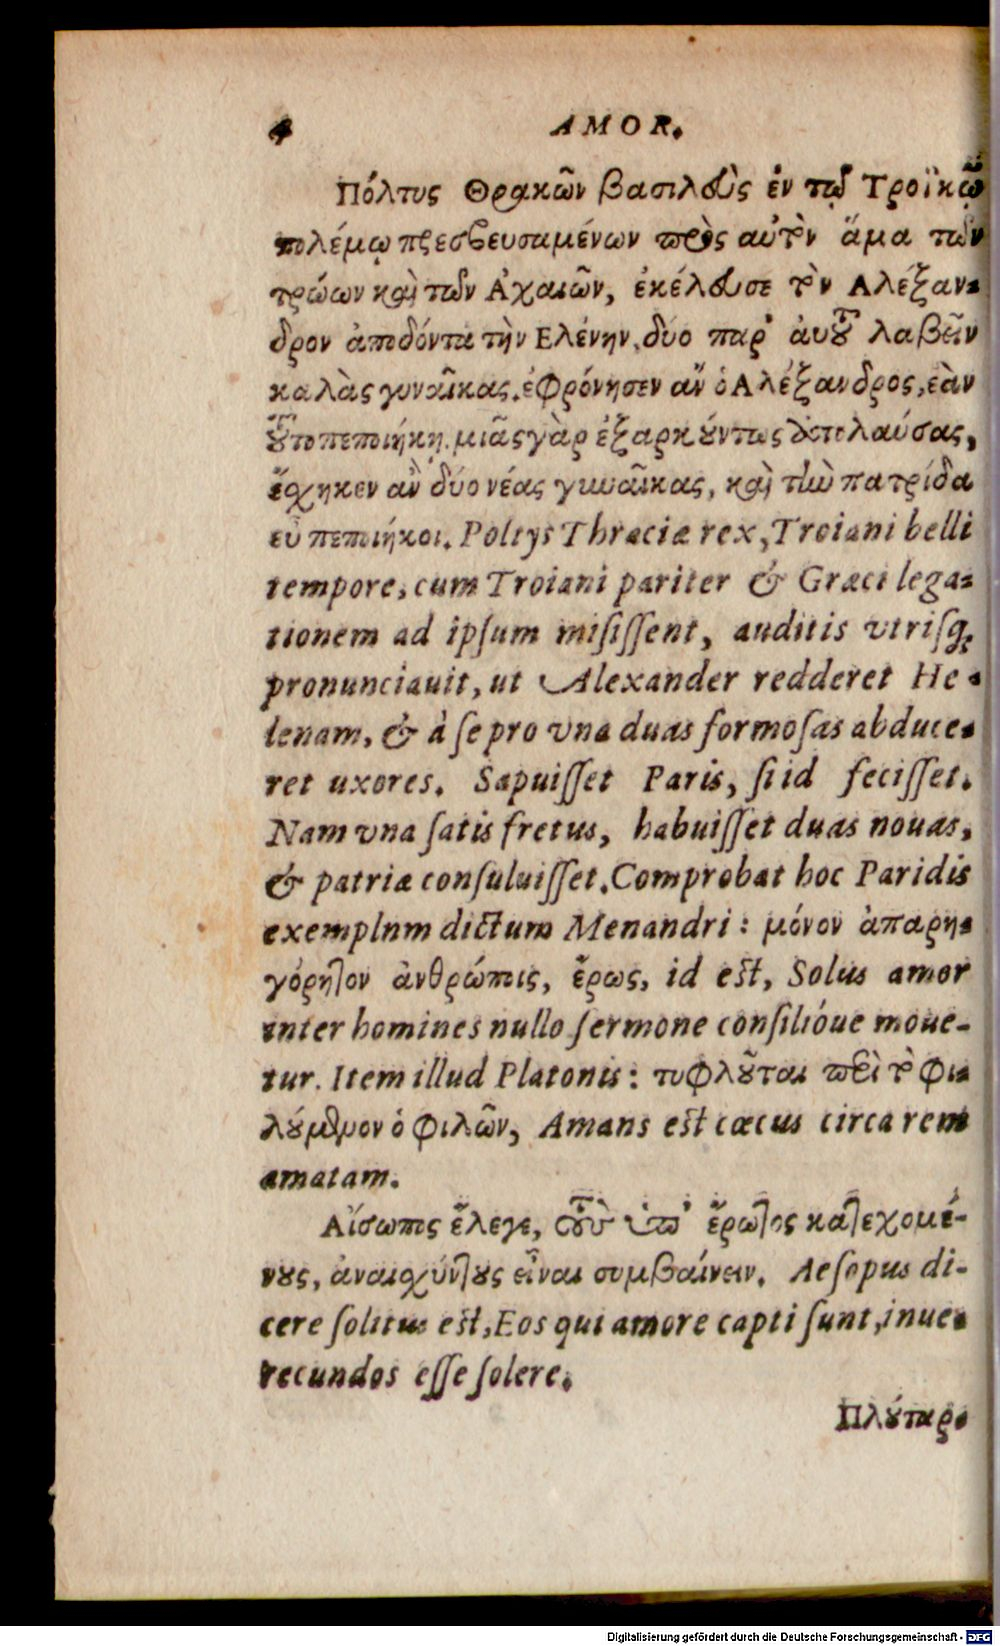 4 AMOR.
Πόλτυς Θρακῶν βασιλεὺς ἐν τῷ Τροϊκῷ
πολέμῳ πρεσβευσαμένων πρὸς αὐτὸν ἅμα τῶν
τρώων καὶ τῶν Ἀχαιῶν, ἐκέλευσε τὸν Αλέξαν-
δρον ἀποδόντα τὴν Ελένην, δύο παρ' ἀυτοῦ λαβεῖν
καλὰς γυναῖκας. ἐφρόνησεν ἂν ὁ Αλέξανδρος, ἐὰν
τοῦτο πεποιήκῃ. μιᾶς γὰρ ἐξαρκούντως ἀπολαύσας,
ἔσχηκεν ἂν δύο νέας γυναῖκας, καὶ τὴν πατρίδα
εὖ πεποιήκοι. Poltys Thraciæ rex, Troiani belli
tempore, cum Troiani pariter & Græci lega-
tionem ad ipſum miſiſſent, auditis vtriſq;
pronunciauit, ut Alexander redderet He-
lenam, & à ſe pro vna duas formoſas abduce-
ret uxores. Sapuiſſet Paris, ſi id feciſſet.
Nam vna ſatis fretus, habuiſſet duas nouas,
& patriæ conſuluiſſet. Comprobat hoc Paridis
exemplnm dictum Menandri: μόνον ἀπαρη-
γόρητον ἀνθρώποις, ἔρως, id est, Solus amor
inter homines nullo ſermone conſilióue moue-
tur. Item illud Platonis: τυφλοῦται περὶ τὸ φι-
λούμενον ὁ φιλῶν, Amans est cæcus circa rem
amatam.
Αἴσωπος ἔλεγε, τοὺς ὑπ' ἔρωτος κατεχομέ-
νους, ἀναισχύντους εἶναι συμβαίνειν. Aeſopus di-
cere ſolitus est, Eos qui amore capti ſunt, inue-
recundos eſſe ſolere.
Πλούταρ-
Digitalisierung gefördert durch die Deutsche Forschungsgemeinschaft - DFG